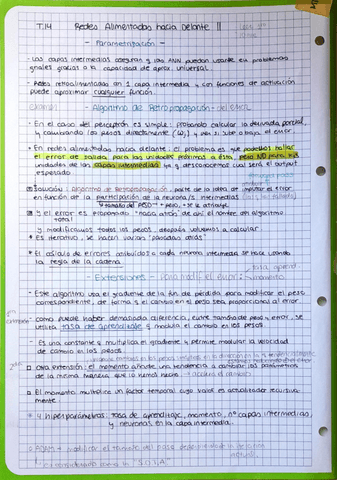 T.14 Redes Alimentadas hacia Delante II
- Parametrización -
- Las capas intermedias aseguran q las ANN puedan usarse en problemas
generales gracias a la capacidad de aprox. universal
- Redes retroalimentadas con 1 capa intermedia y con funciones de activación
puede aproximar cualquier función
- Algoritmo de Retropropagación - del error
- En el caso del perceptrón es simple: probando calcular la derivada parcial,
y cambiando los pesos directamente (wj) y ver si sube o baja el error
- En redes alimentadas hacia delante: el problema es que podemos hallar
el error de salida para las unidades próximas a ésta, pero NO para las
unidades de las capas intermedias ya q desconocemos cual sería el output
esperado
Solución: algoritmo de Retropropagación, parte de la idea de imputar el error
en función de la participación de la neurona/s intermedias
↳ tamaño del peso → + peso, + se le atribuye
y el error es propagado "hacia atrás" de ahí el nombre del algoritmo
total
y modificamos todos los pesos, después volvemos a calcular
* Es iterativo, se harán varias "pasadas atrás"
El cálculo de errores atribuidos a cada neurona intermedia se hace usando
la regla de la cadena
- Extensiones - Para modif. el error
momento
- Este algoritmo usa el gradiente de la fun. de pérdida para modificar el peso
correspondiente, de forma q el cambio en el peso sea proporcional al error.
- como puede haber demasiada diferencia, entre tamaño de peso y error, se
utiliza tasa de aprendizaje q modula el cambio en los pesos.
- Es una constante q multiplica el gradiente y permite modular la velocidad
de cambio en los pesos
otra extensión: el momento añade una tendencia a cambiar los parámetros
de la misma manera que lo venía hecho
El momento multiplica un factor temporal cuyo valor es actualizador recursiva
mente
* 4 hiperparámetros: tasa de aprendizaje, momento, nº capas intermedias,
y neuronas en la capa intermedia.